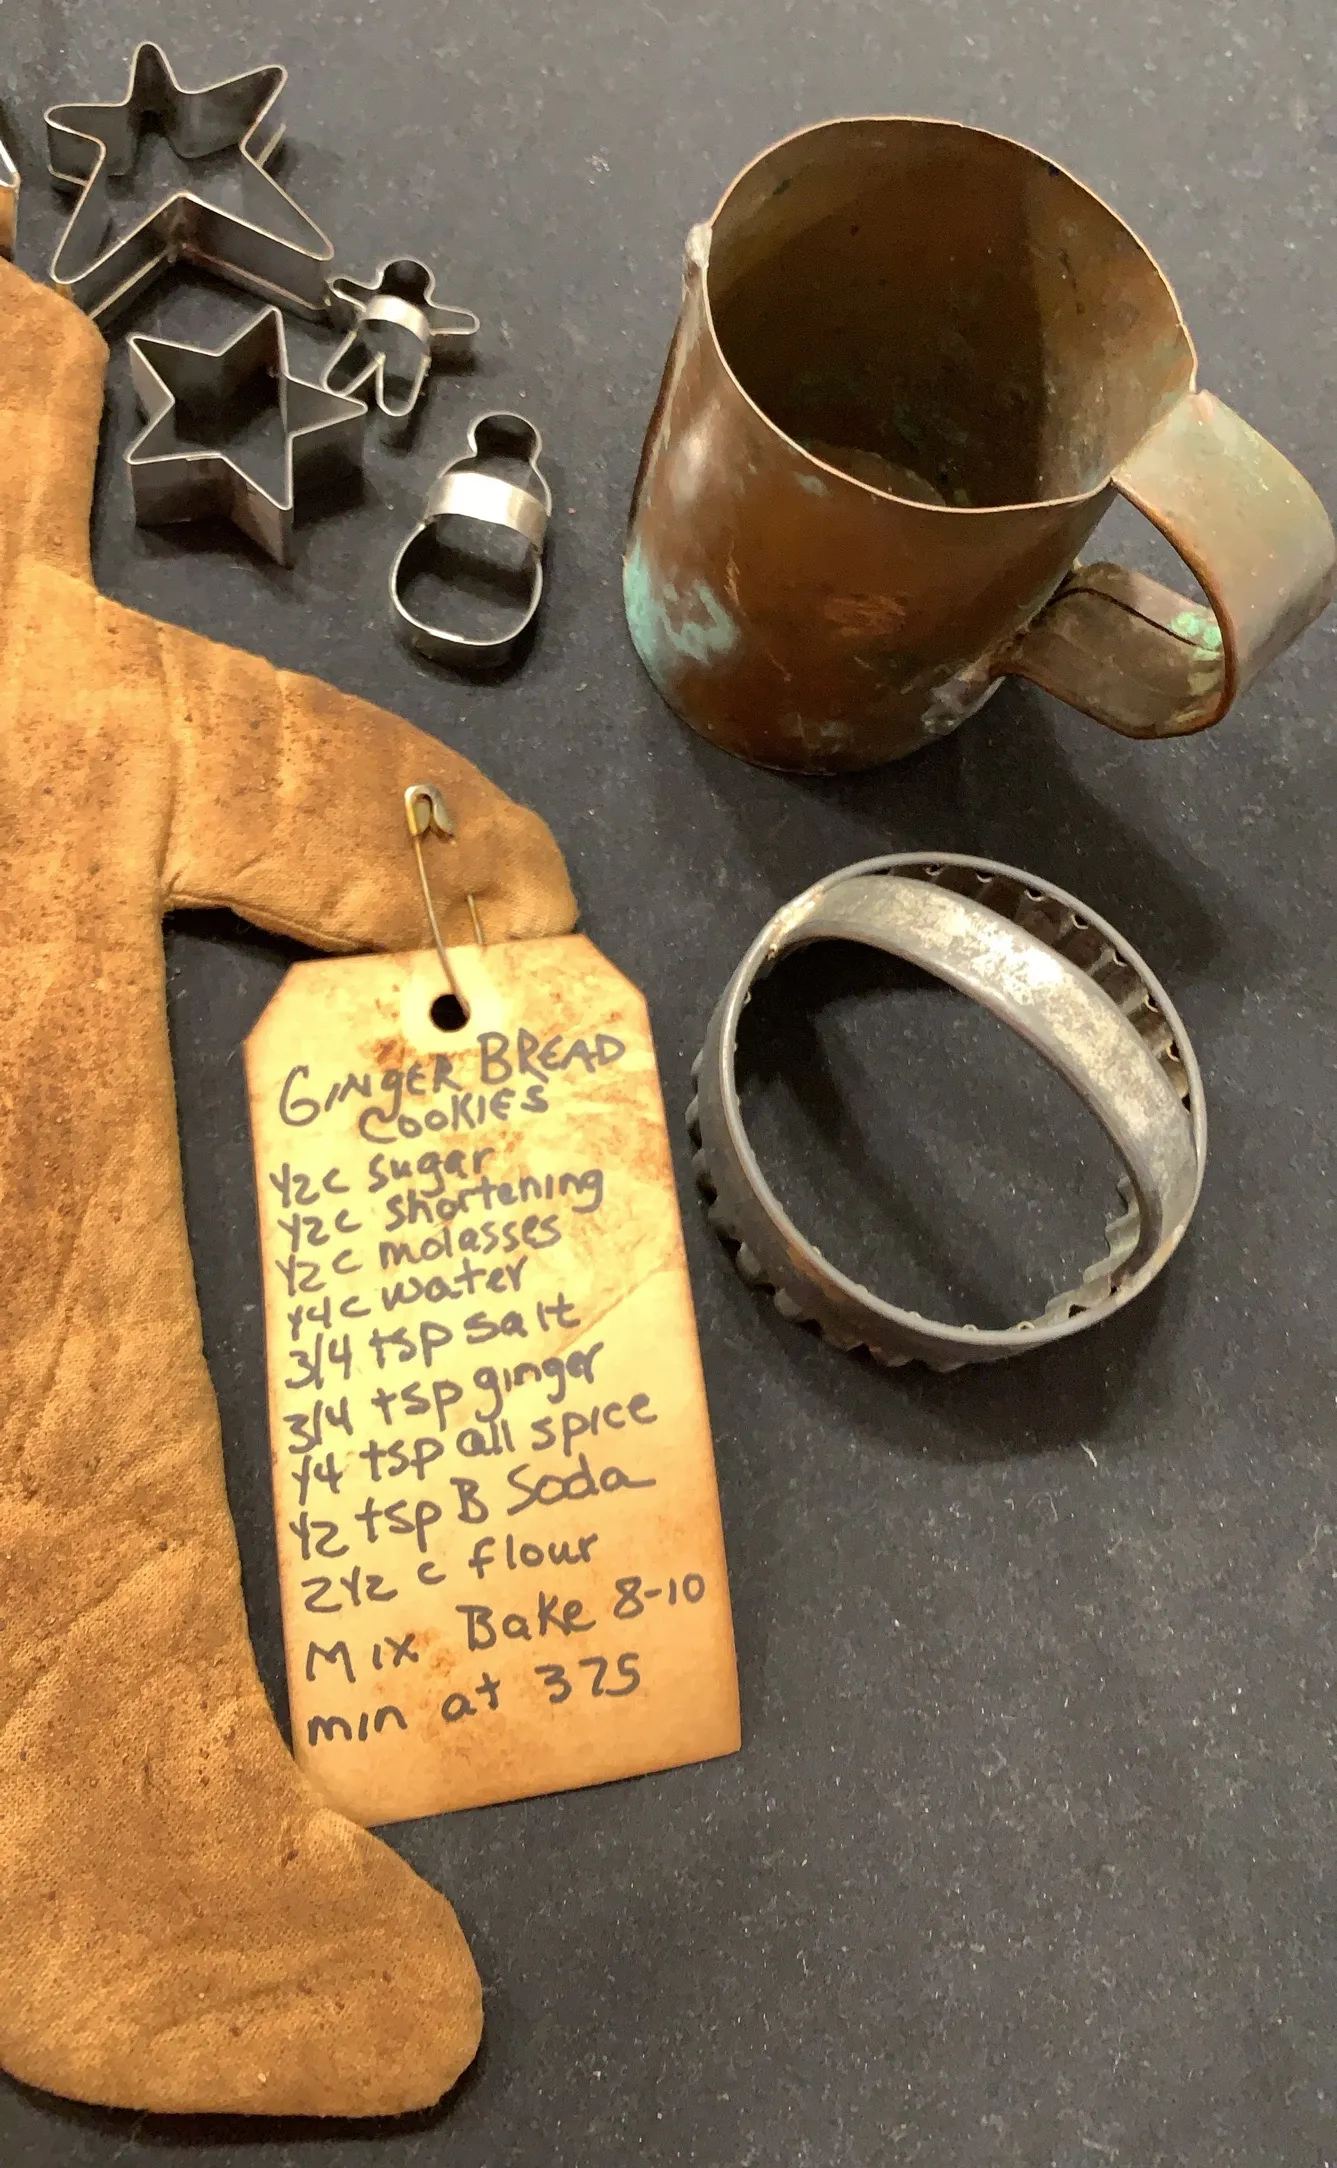 GINGER BREAD
COOKIES
1/2 c sugar
1/2 c shortening
1/2 c molasses
1/4 c water
3/4 tsp salt
3/4 tsp ginger
1/4 tsp all spice
1/2 tsp B Soda
2 1/2 c flour
Mix Bake 8-10
min at 375